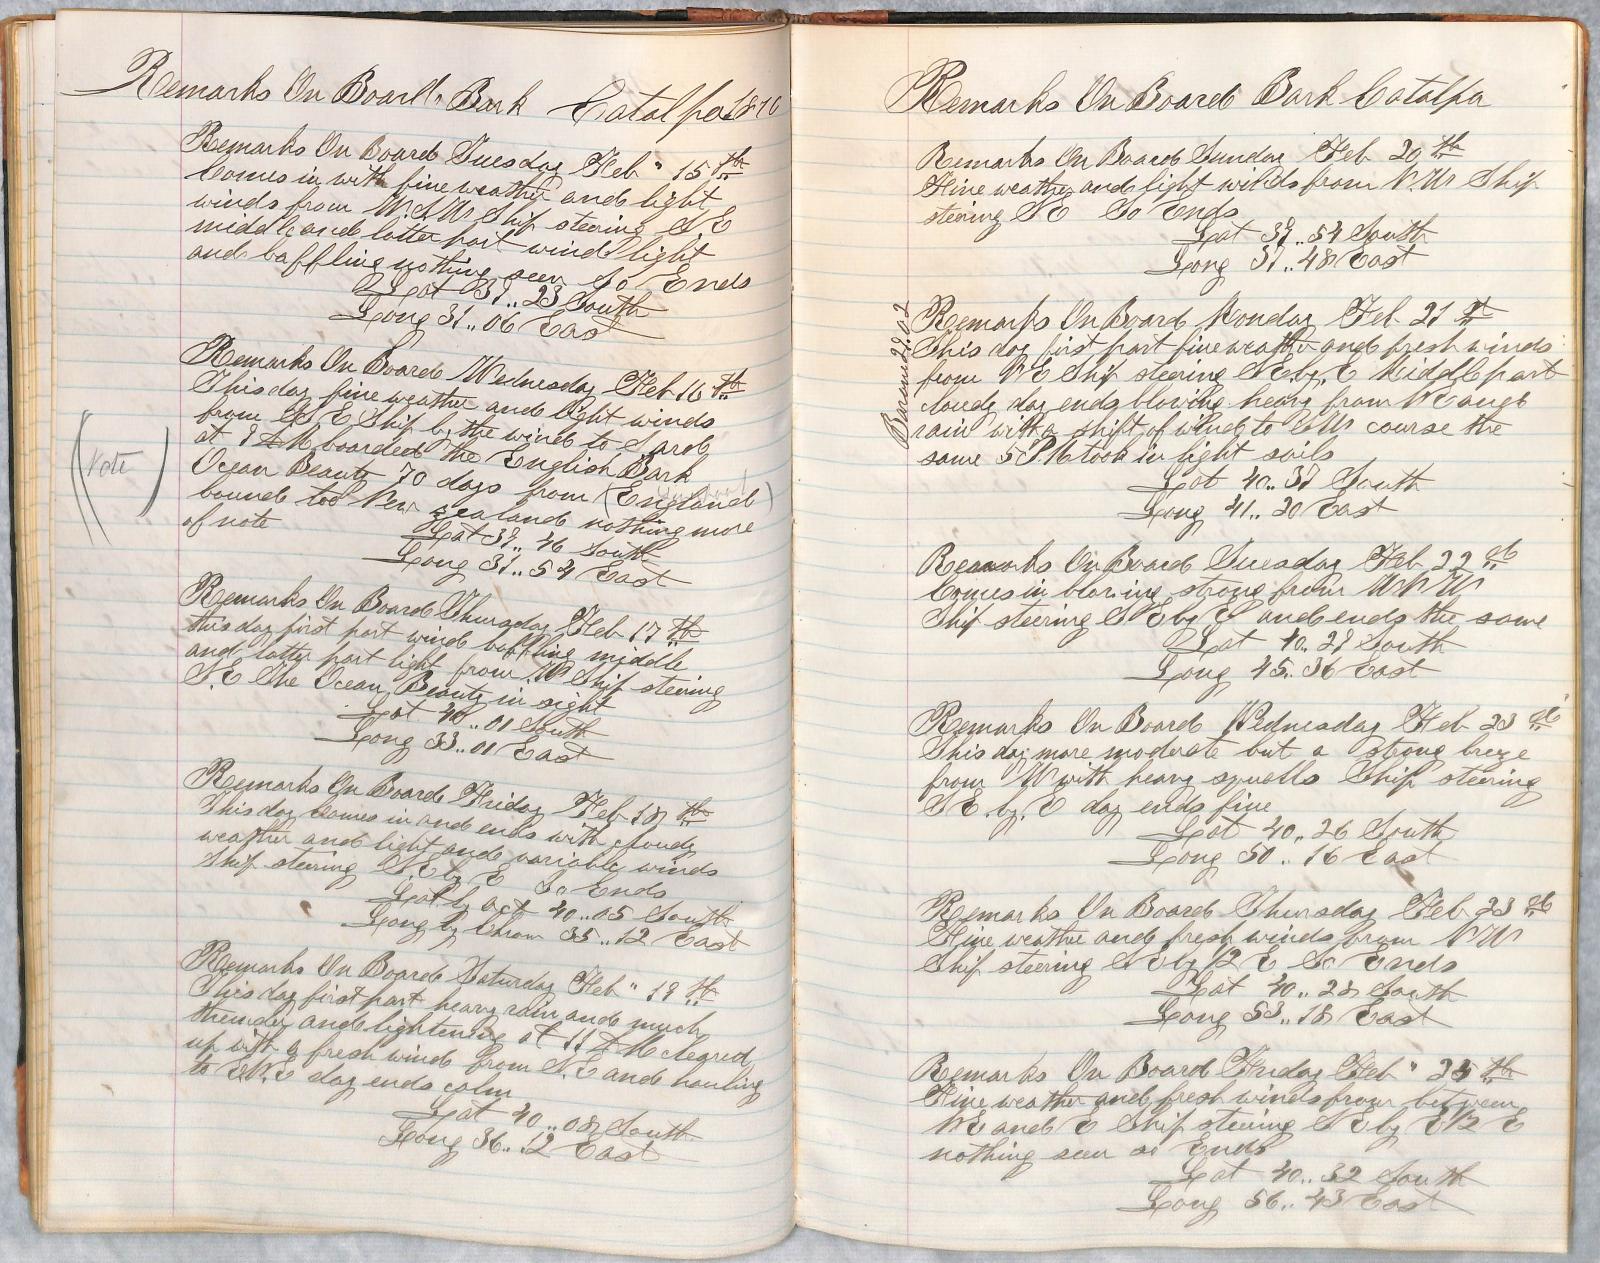 Remarks On Board Bark Catalpa 1876
Remarks On Board Tuesday Feb " 15th
Comes in with fine weather and light
winds from W.S.W Ship steering S.E
middle and latter part wind light
and baffling nothing seen So Ends
Lat 39..23 South
Long 31..06 East
Remarks On Board Wednesday Feb 16th
This day fine weather and light winds
from S.E Ship by the wind to
at 9 AM boarded the English Bark
Ocean Beauty 70 days from (England)
bound too New zealand nothing more
of note
Note
Lat 39..46 South
Long 31..54 East
Remarks On Board Thursday Feb 17th
this day first part wind baffling middle
and latter part light from W Ship steering
S.E The Ocean Beauty in sight
Lat 40..01 South
Long 33..01 East
Remarks On Board Friday Feb 18th
This day Comes in and ends with cloudy
weather and light and variable winds
Ship steering S.E by E So Ends
Lat by act 40..05 South
Long by Chrom 35..12 East
Remarks On Board Saturday Feb " 19th
This day first part heavy rain and much
thunder and lightening at 11 AM cleared
up with a fresh wind from S.E and hauling
to E.N.E day ends calm
Lat 40..08 South
Long 36..12 East
Remarks On Board Bark Catalpa
Remarks On Board Sunday Feb 20th
Fine weather and light winds from N.W Ship
steering S.E So Ends
Lat 39..54 South
Long 37..48 East
Remarks On Board Monday Feb 21st
This day first part fine weather and fresh winds
from N E Ship steering S.E. by. E Middle part
cloudy day ends blowing heavy from N E and
rain with a shift of wind to course the
same 5 P.M took in light sails
Lat 40..37 South
Long 41..20 East
Remarks On Board Tuesday Feb 22nd
Comes in blowing strong from W N W
Ship steering S E by E and ends the same
Lat 40..29 South
Long 45..36 East
Remarks On Board Wednesday Feb 23rd
This day more moderate but a strong breeze
from W with heavy squalls Ship steering
S E. by. E day ends fine
Lat 40..26 South
Long 50..16 East
Remarks On Board Thursday Feb 23rd
Fine weather and fresh winds from N W
Ship steering S E by 1/2 E So Ends
Lat 40..28 South
Long 53..18 East
Remarks On Board Friday Feb " 25th
Fine weather and fresh winds from between
N E and E Ship steering S E by E 1/2 E
nothing seen so Ends
Lat 40..32 South
Long 56..43 East